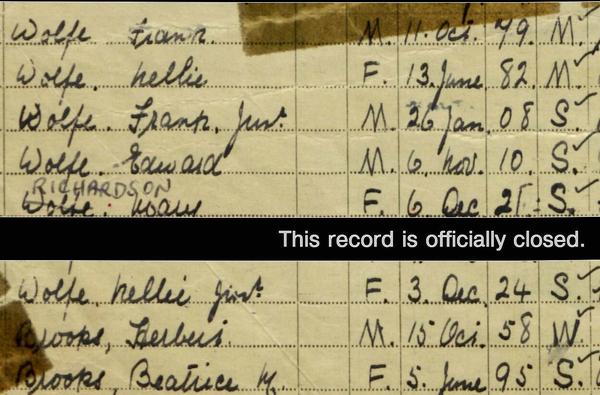 Wolfe Frank. M. 11. Oct. 79. M.
Wolfe. Nellie F. 13. June 82. M.
Wolfe. Frank. Junr. M. 26 Jan. 08 S.
Wolfe. Edward M. 6. Nov. 10. S.
RICHARDSON
Wolfe. F. 6. Dec 21. S.
This record is officially closed.
Wolfe, Nellie Junr. F. 3. Dec. 24 S.
Brooks, Herbert. M. 15 Oct. 58 W.
Brooks, Beatrice M. F. 5. June 95 S.